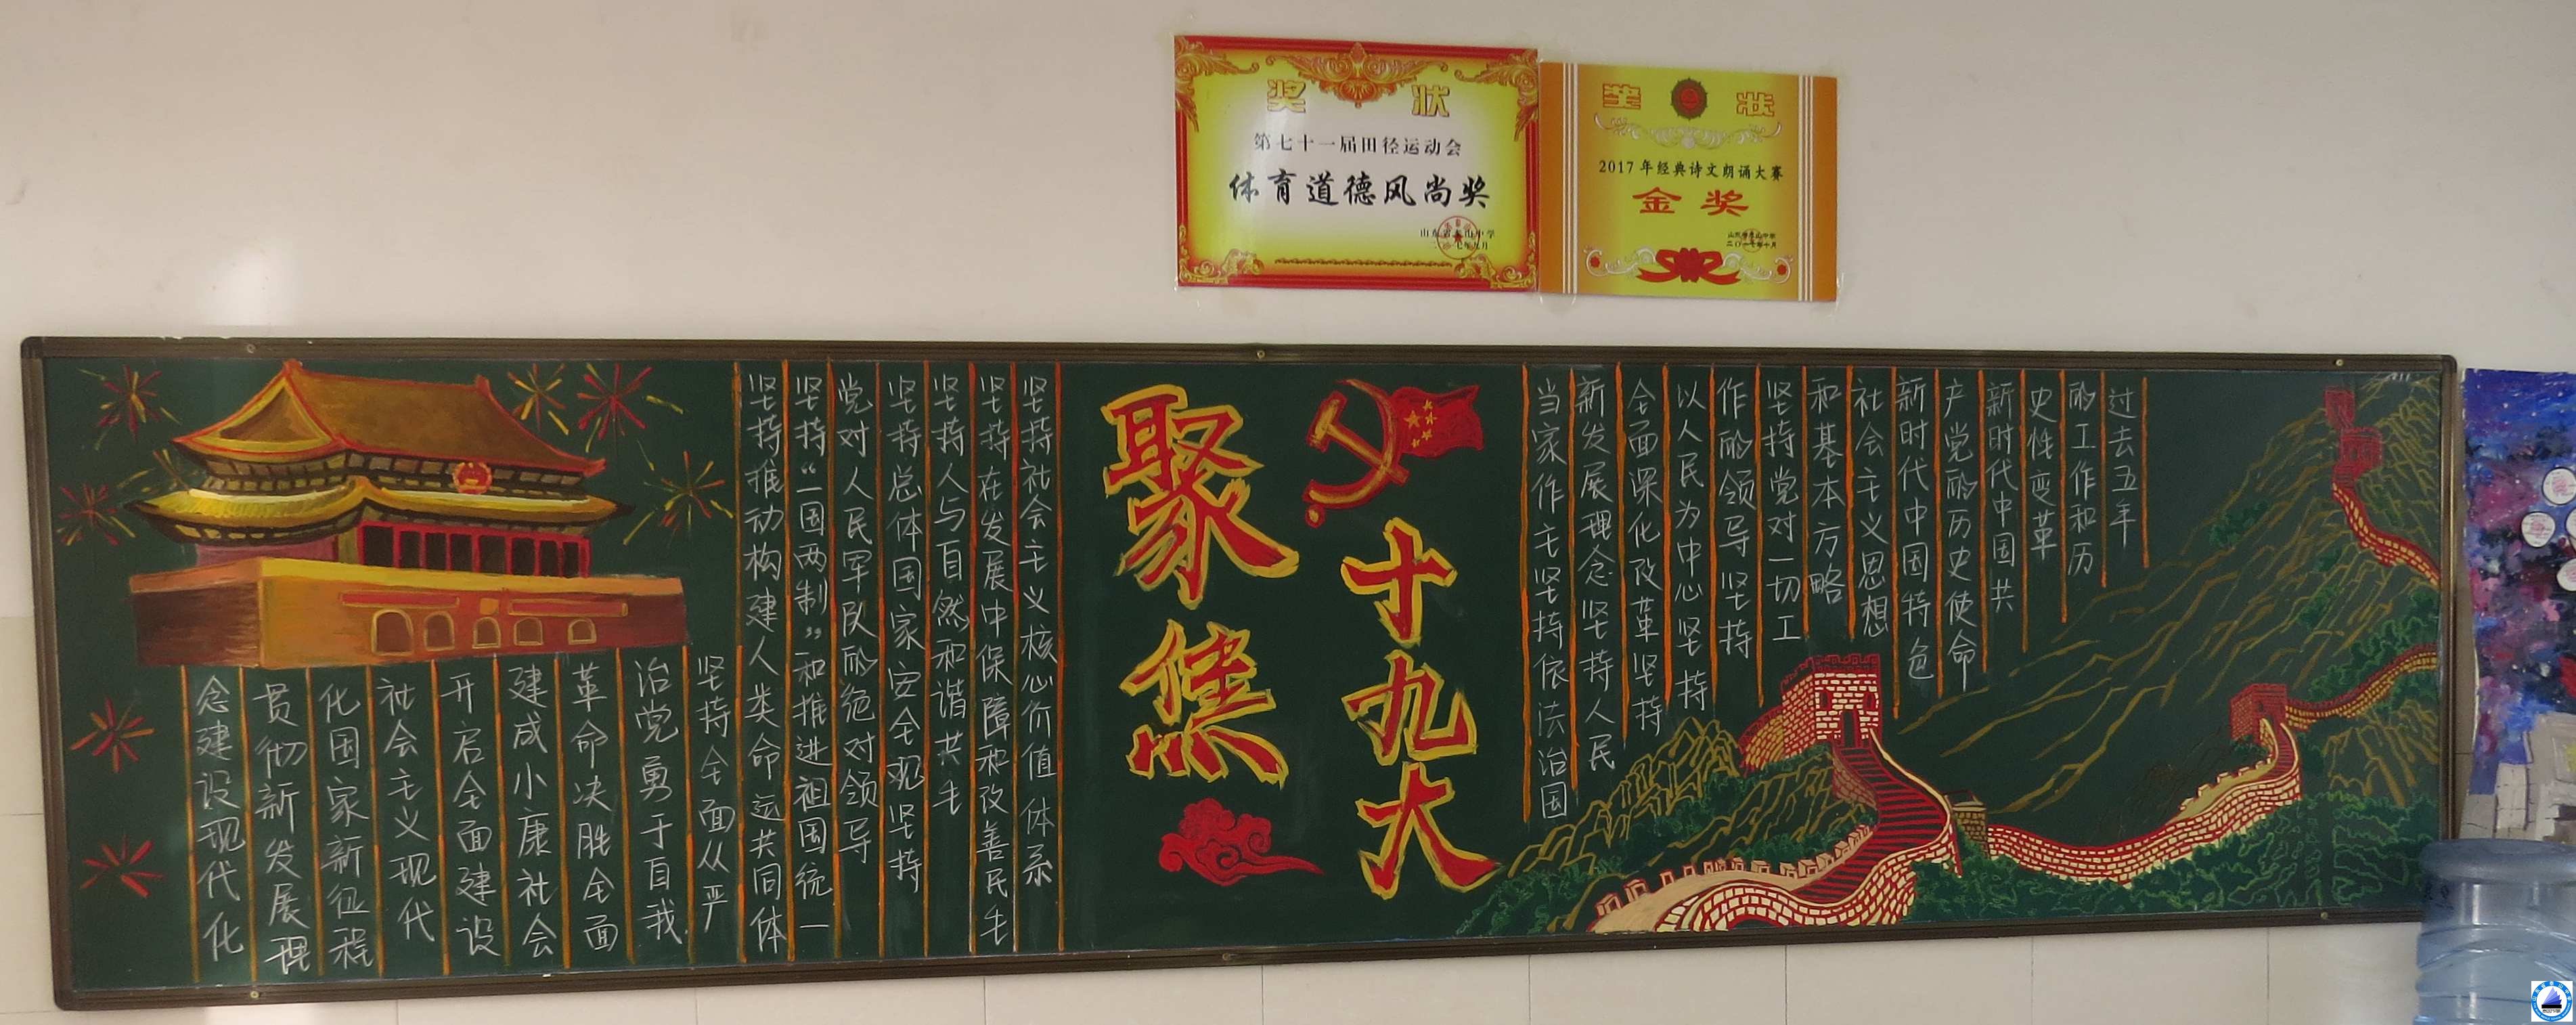 奖状
第七十一届田径运动会
体育道德风尚奖
奖状
2017年经典诗文朗诵大赛
金奖
聚焦
十九大
过去五年
的工作和历
史性变革
新时代中国共
产党的历史使命
新时代中国特色
社会主义思想
和基本方略
坚持党对一切工
作的领导坚持
以人民为中心坚持
全面深化改革坚持
新发展理念坚持人民
当家作主坚持依法治国
坚持社会主义核心价值体系
坚持在发展中保障和改善民生
坚持人与自然和谐共生
坚持总体国家安全观坚持
党对人民军队的绝对领导
坚持“一国两制”和推进祖国统一
坚持推动构建人类命运共同体
坚持全面从严
治党勇于自我
革命决胜全面
建成小康社会
开启全面建设
社会主义现代
化国家新征程
贯彻新发展理
念建设现代化